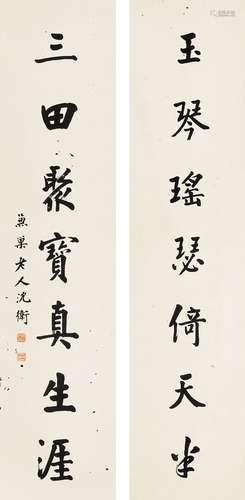 玉琴瑤瑟倚天半
三田聚寶真生涯
兼巢老人沈衛